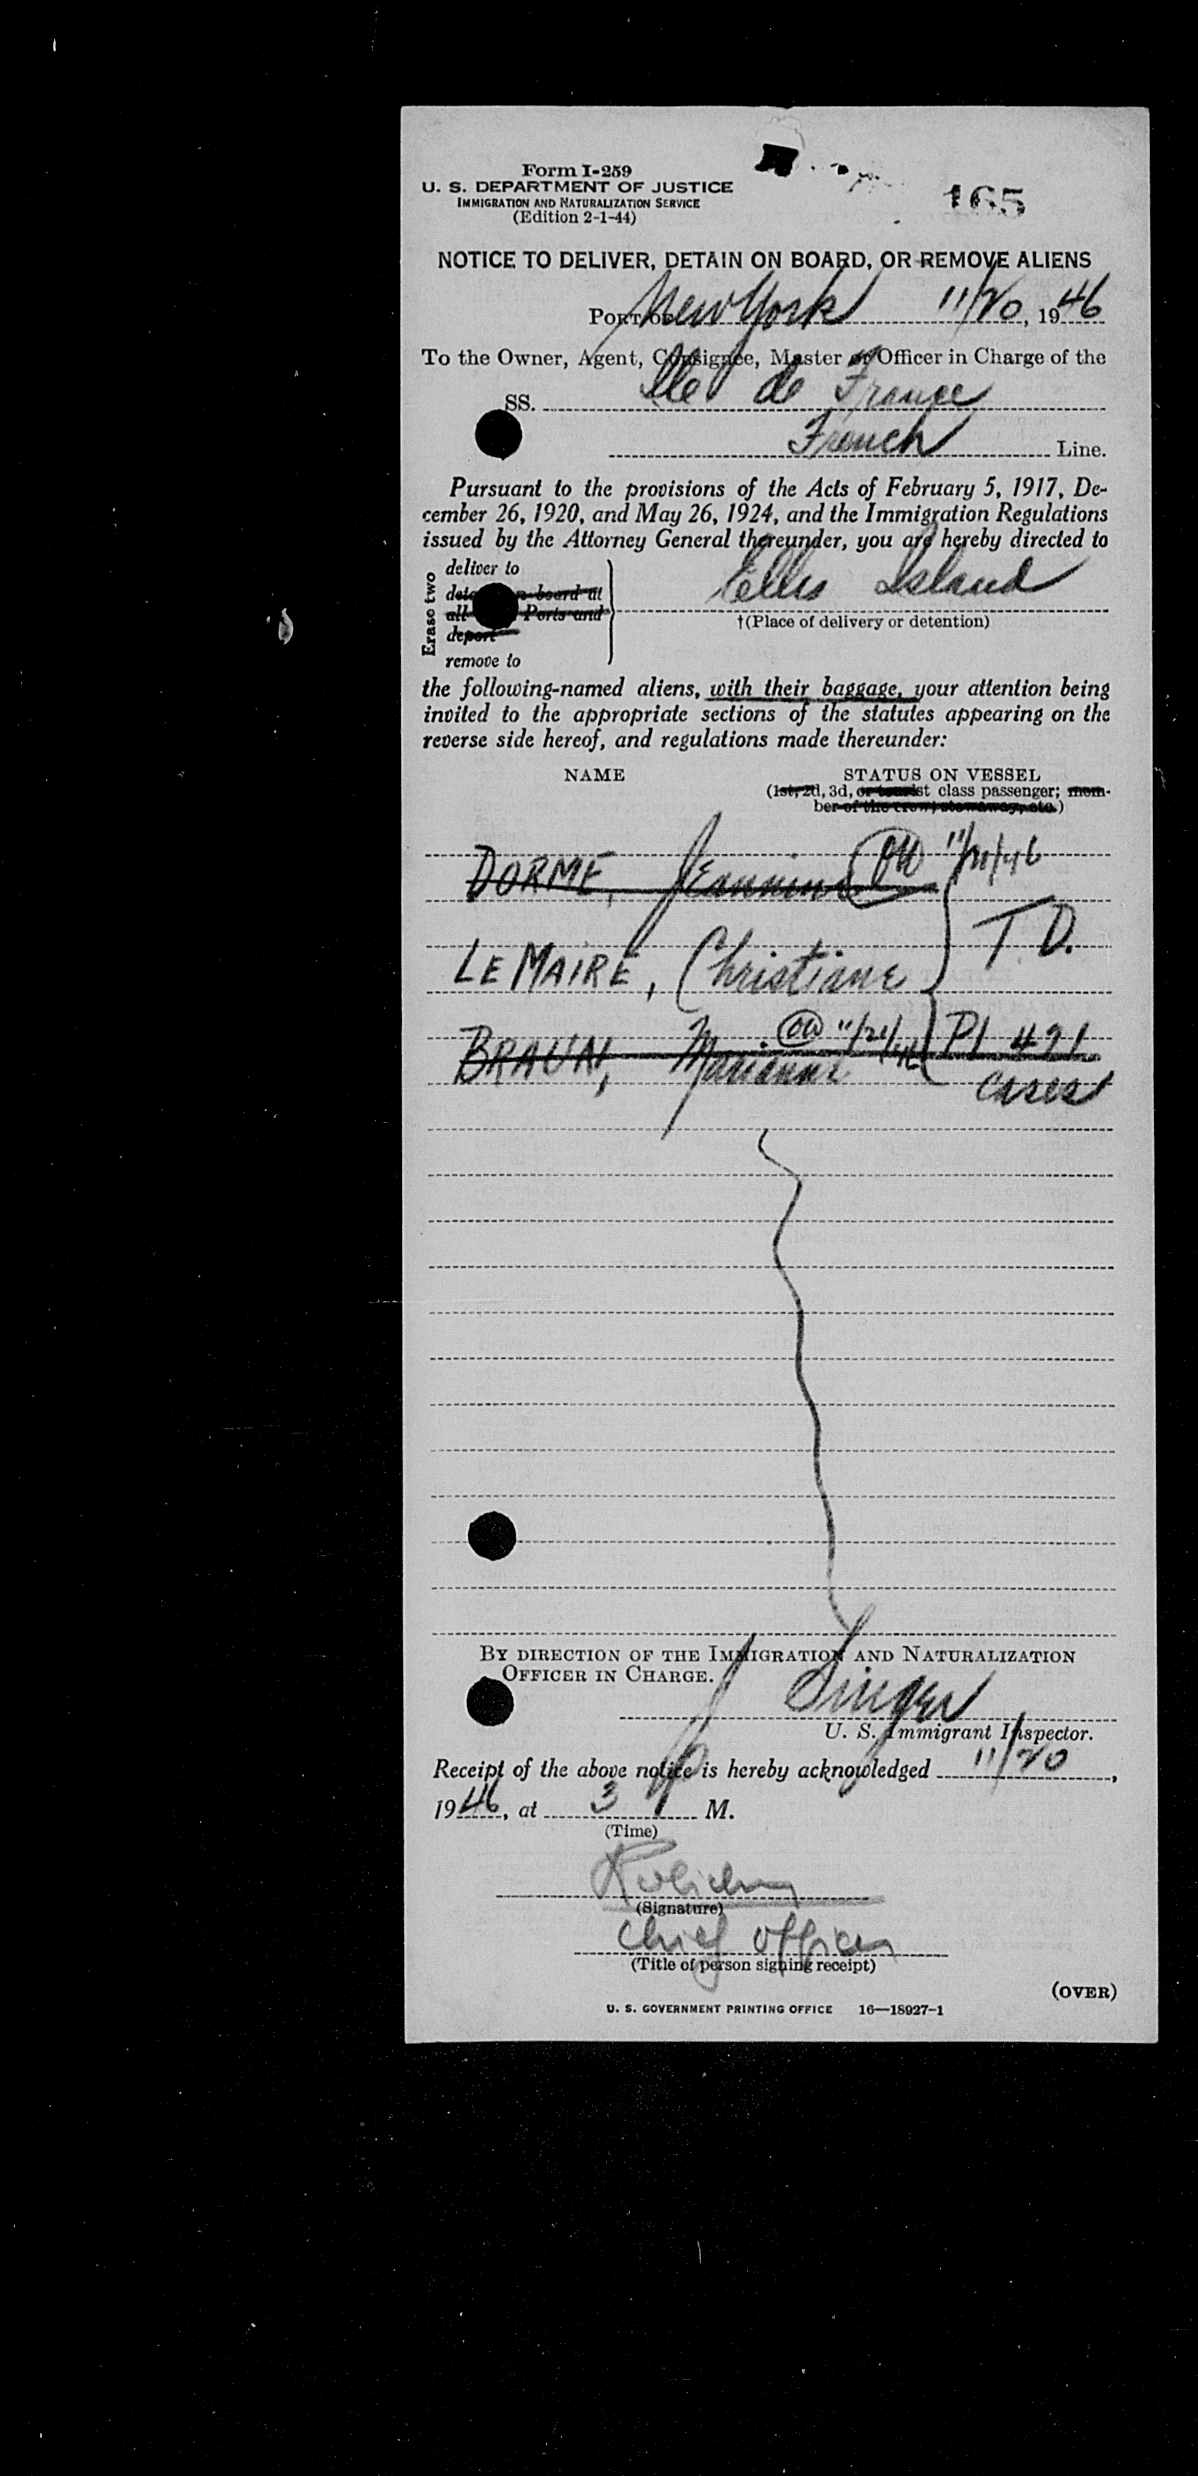 Form I-259
U. S. DEPARTMENT OF JUSTICE
IMMIGRATION AND NATURALIZATION SERVICE
(Edition 2-1-44)
165
NOTICE TO DELIVER, DETAIN ON BOARD, OR REMOVE ALIENS
PORT OF New York 11/20, 1946
To the Owner, Agent, Consignee, Master or Officer in Charge of the
SS. Ile de France
French Line.
Pursuant to the provisions of the Acts of February 5, 1917, De-
cember 26, 1920, and May 26, 1924, and the Immigration Regulations
issued by the Attorney General thereunder, you are hereby directed to
Erase two
deliver to
board at
all Ports and
deport
remove to
Ellis Island
†(Place of delivery or detention)
the following-named aliens, with their baggage, your attention being
invited to the appropriate sections of the statutes appearing on the
reverse side hereof, and regulations made thereunder:
NAME STATUS ON VESSEL
(1st, 2d, 3d, or tourist class passenger; mem-
ber of the crew, stowaway, etc.)
DORME, Jeannine 11/21/46
T D.
LEMAIRE, Christiane
BRAUN, Marianne 11/21/46 Pl 421
cases
BY DIRECTION OF THE IMMIGRATION AND NATURALIZATION
OFFICER IN CHARGE.
J Singer
U. S. Immigrant Inspector.
Receipt of the above notice is hereby acknowledged 11/20,
1946, at 3 P M.
(Time)
(Signature)
Chief officer
(Title of person signing receipt)
(OVER)
U. S. GOVERNMENT PRINTING OFFICE 16—18927-1